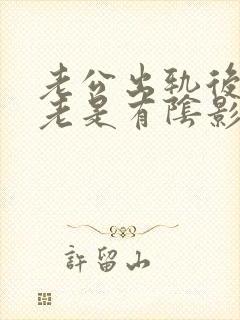 老公出軌後
老是有陰影
許留山